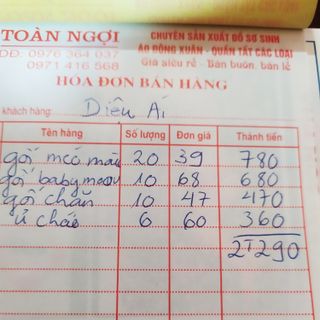 TOÀN NGỢI
CHUYÊN SẢN XUẤT ĐỒ SƠ SINH
ÁO ĐÔNG XUÂN - QUẦN TẤT CÁC LOẠI
DĐ: 0976 364 037
0971 416 568
Giá siêu rẻ - Bán buôn, bán lẻ
HÓA ĐƠN BÁN HÀNG
khách hàng: Diệu Ái
Tên hàng Số lượng Đơn giá Thành tiền
gối mcó màu 20 39 780
gối baby moon 10 68 680
gối chăn 10 47 470
ủ cháo 6 60 360
2T290